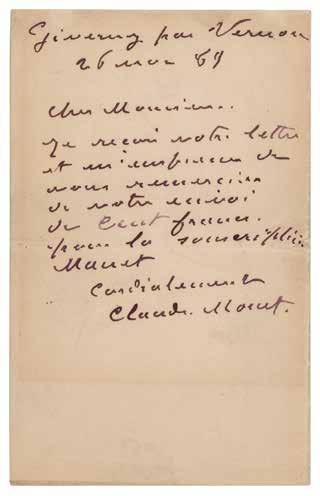 Giverny par Vernon
26 nov 89
Cher Monsieur.
Je reçois votre lettre
et m'empresse de
vous remercier
de votre envoi
de Cent francs.
pour la souscription
Manet
Cordialement
Claude Monet.